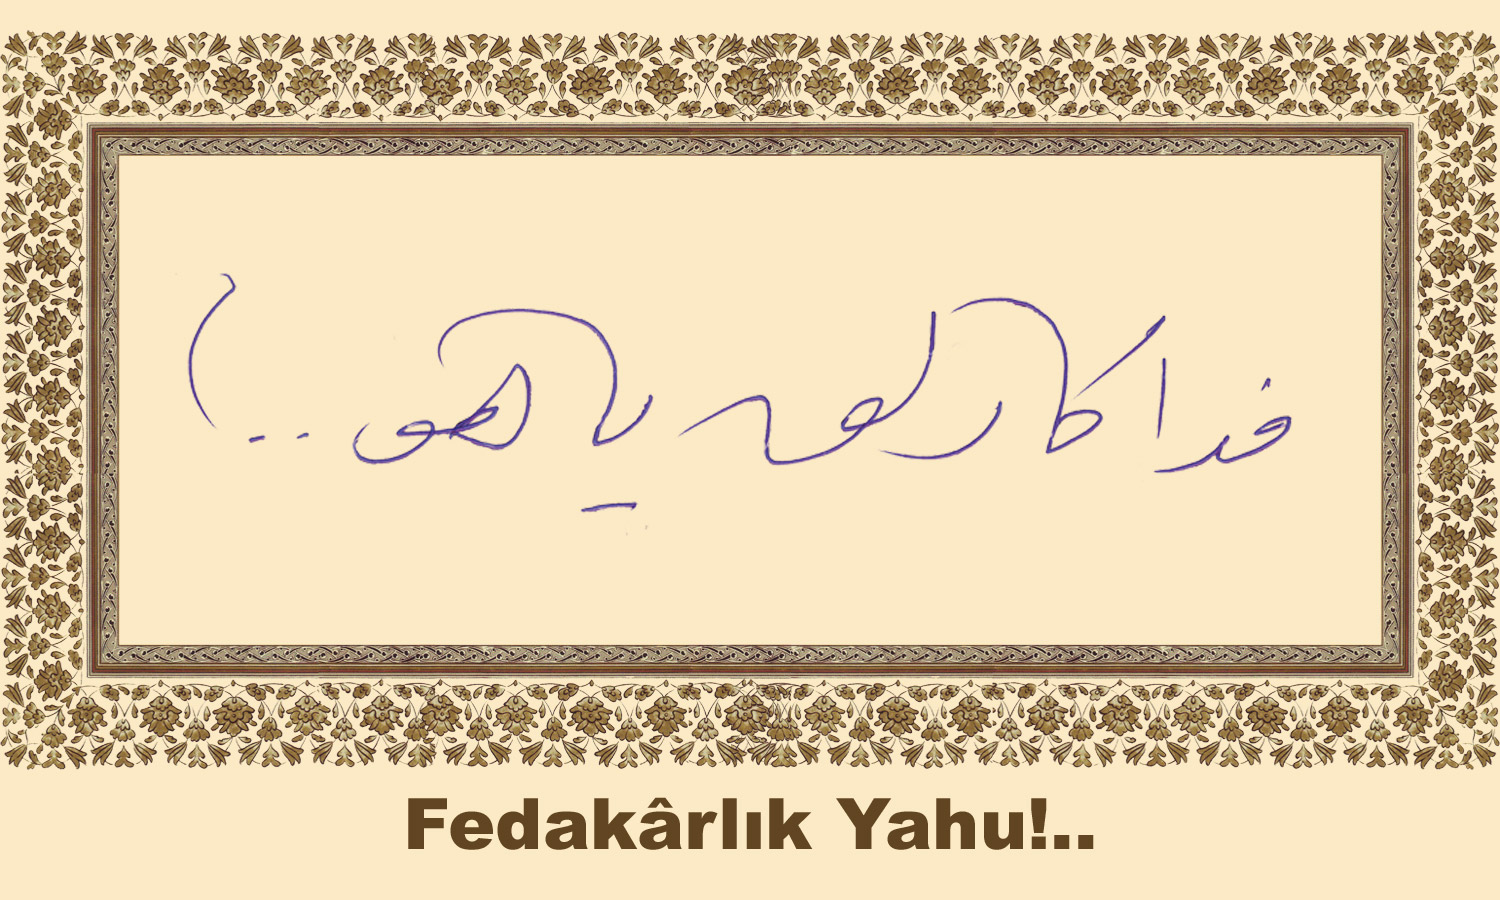 فداكارلق ياهو..!
Fedakârlık Yahu!..